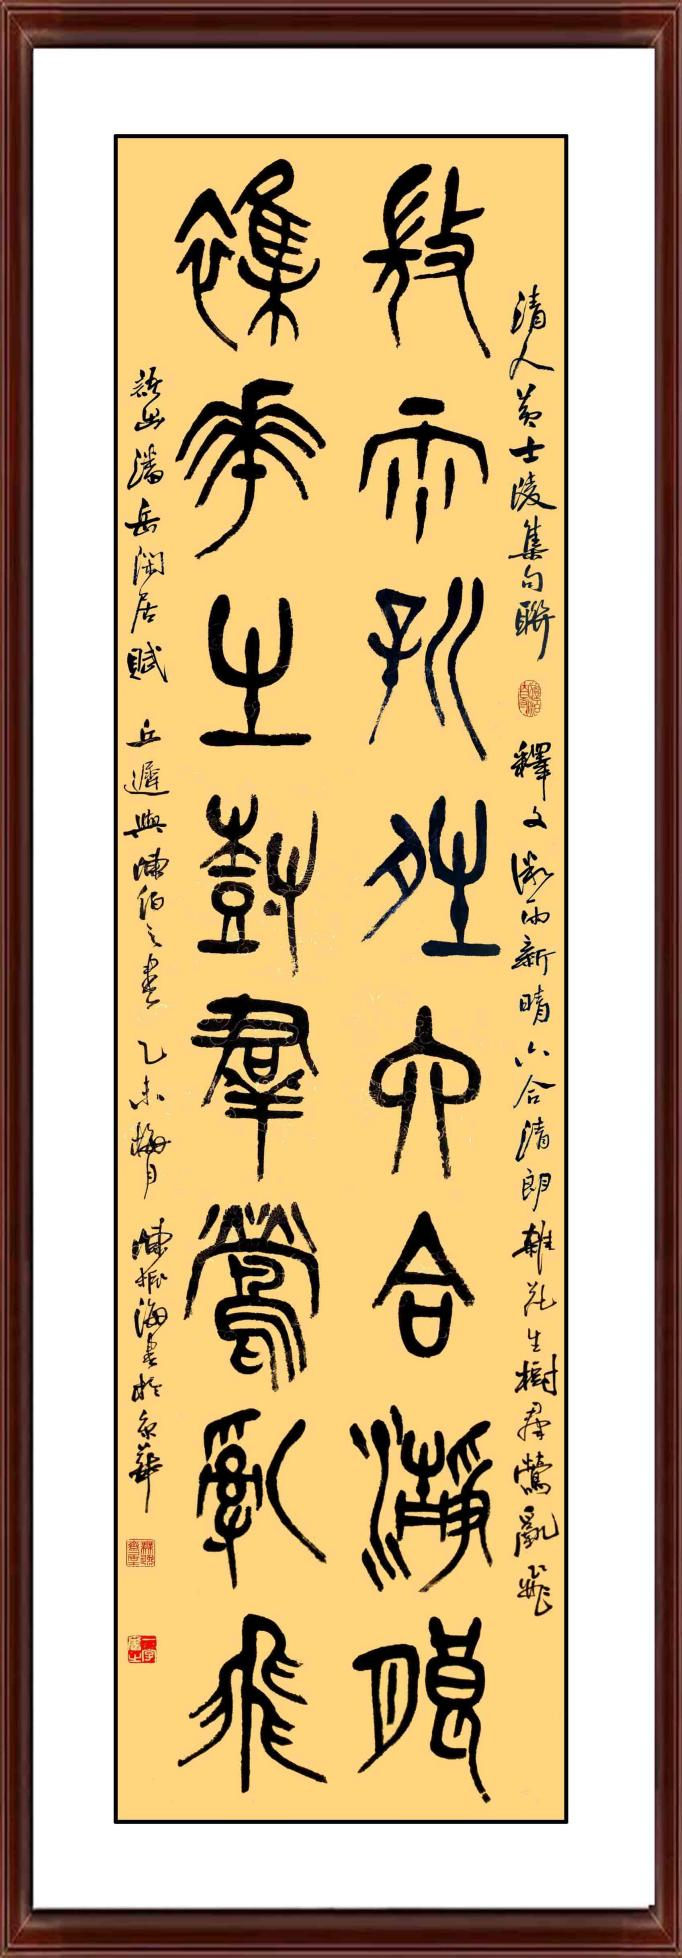 清人黄士陵集句聯 釋文 微雨新晴六合清朗 雜花生樹群鶯亂飛
敚雨新晴六合瀞朖
雜華生尌羣鶯亂飛
語出潘岳閒居賦 丘遲與陳伯之書 乙未梅月 陳振海書於京華